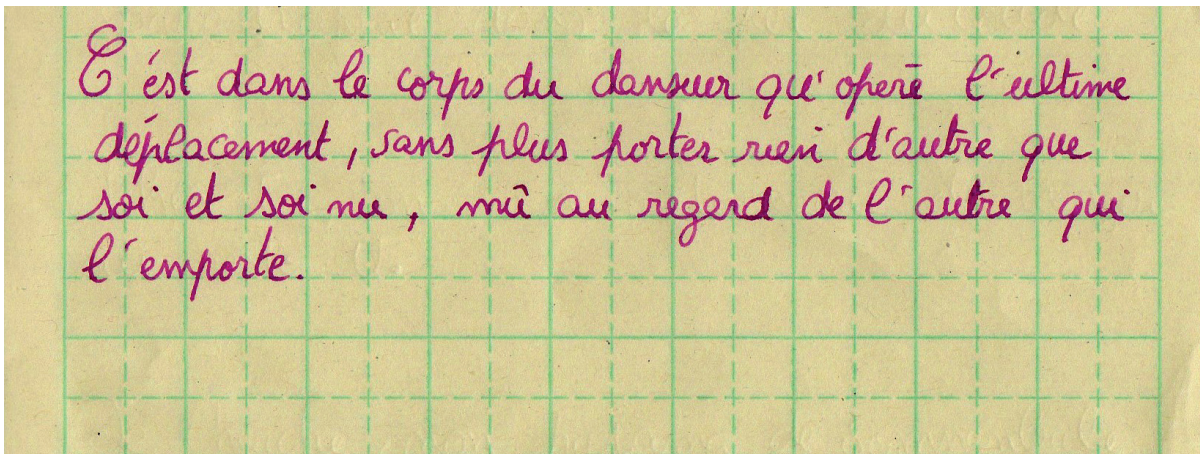 C'est dans le corps du danseur qu'opère l'ultime
déplacement, sans plus porter rien d'autre que
soi et soi nu, mû au regard de l'autre qui
l'emporte.